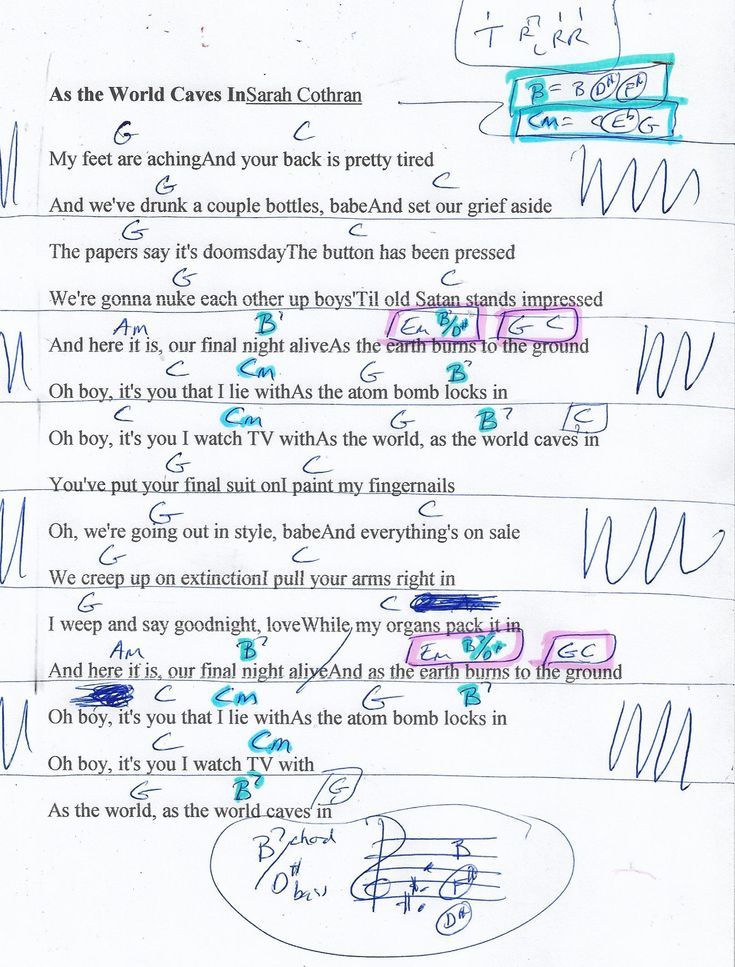 T R L R R
As the World Caves InSarah Cothran
B = B D# F#
Cm = C Eb G
G C
My feet are achingAnd your back is pretty tired
G C
And we've drunk a couple bottles, babeAnd set our grief aside
G C
The papers say it's doomsdayThe button has been pressed
G C
We're gonna nuke each other up boys'Til old Satan stands impressed
Am B7 Em B7/D# G C
And here it is, our final night aliveAs the earth burns to the ground
C Cm G B7
Oh boy, it's you that I lie withAs the atom bomb locks in
C Cm G B7 C
Oh boy, it's you I watch TV withAs the world, as the world caves in
G C
You've put your final suit onI paint my fingernails
G C
Oh, we're going out in style, babeAnd everything's on sale
G C
We creep up on extinctionI pull your arms right in
G C
I weep and say goodnight, loveWhile my organs pack it in
Am B7 Em B7/D# G C
And here it is, our final night aliveAnd as the earth burns to the ground
C Cm G B7
Oh boy, it's you that I lie withAs the atom bomb locks in
C Cm
Oh boy, it's you I watch TV with
G B7 G
As the world, as the world caves in
B7 chord
D# bass
B
F#
D#